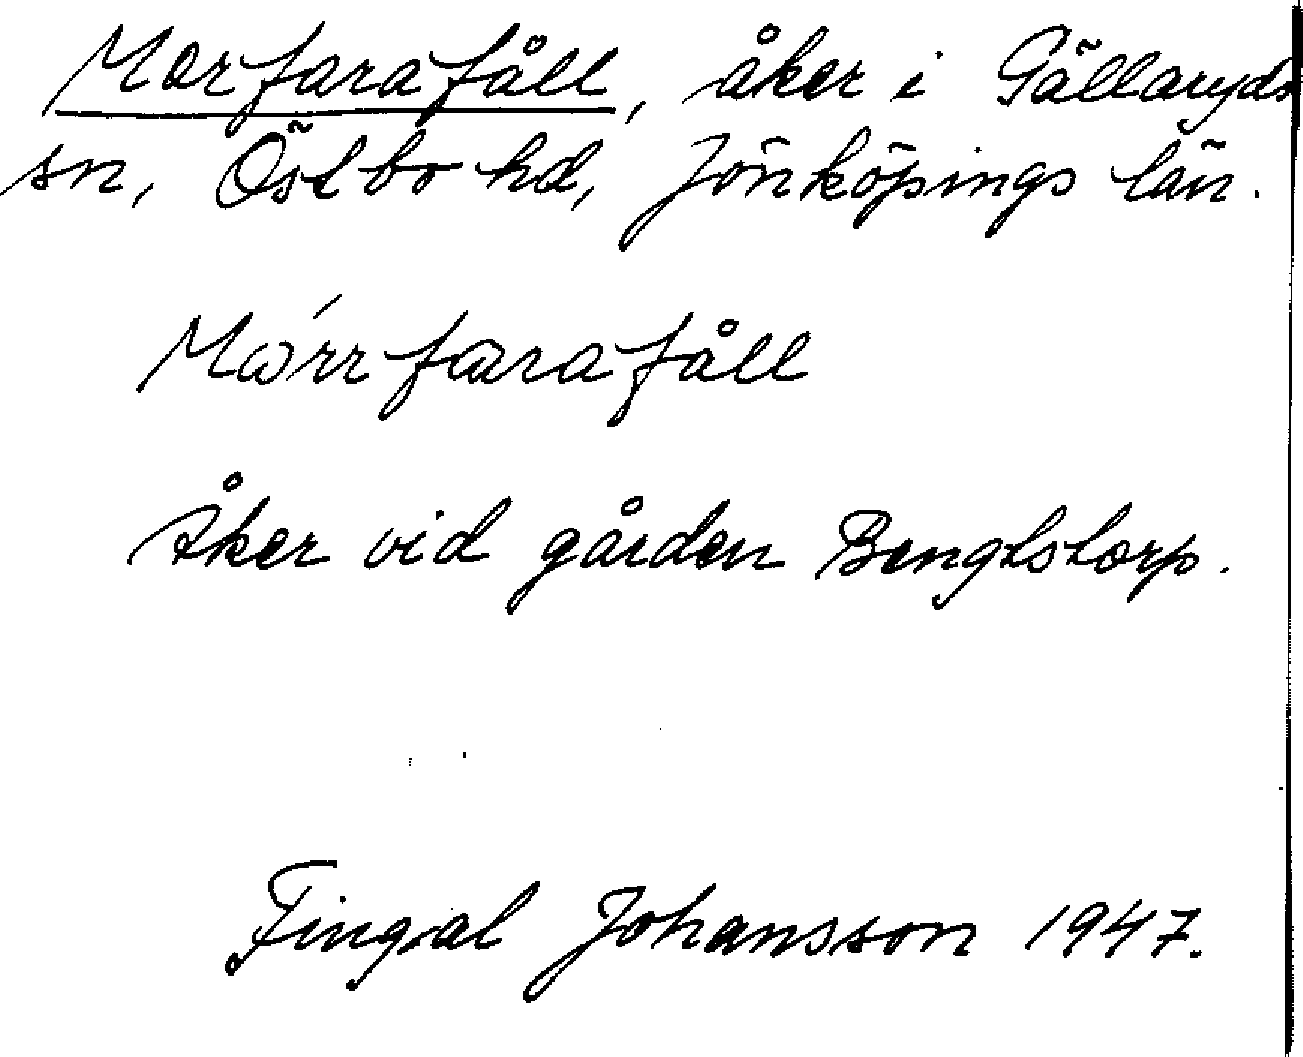 Morfarafåll, åker i Gällaryds
sn, Östbo hd, Jönköpings län.
Mωrrfarafåll
Åker vid gården Bengtstorp.
Fingal Johansson 1947.